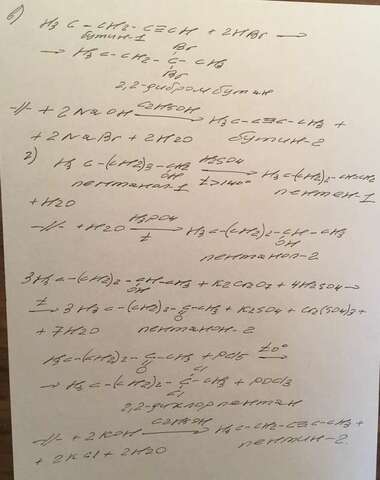 в) H3C-CH2-C≡CH + 2HBr ⟶
бутин-1
Br
⟶ H3C-CH2-C-CH3
Br
2,2-дибромбутан
-//- + 2NaOH C2H5OH ⟶ H3C-C≡C-CH3 +
+ 2NaBr + 2H2O бутин-2
г) H3C-(CH2)3-CH2 H2SO4 ⟶ H3C-(CH2)2-CH=CH2
OH t>140°
пентанол-1 пентен-1
+H2O
-//- +H2O H3PO4 ⟶ H3C-(CH2)2-CH-CH3
t OH
пентанол-2
3H3C-(CH2)2-CH-CH3 + K2Cr2O7 + 4H2SO4 ⟶
OH
t ⟶ 3H3C-(CH2)2-C-CH3 + K2SO4 + Cr2(SO4)3 +
O
+ 7H2O пентанон-2
H3C-(CH2)2-C-CH3 + PCl5 t0° ⟶
O
Cl
⟶ H3C-(CH2)2-C-CH3 + POCl3
Cl
2,2-дихлорпентан
-//- + 2KOH C2H5OH ⟶ H3C-CH2-C≡C-CH3 +
+ 2KCl + 2H2O пентин-2